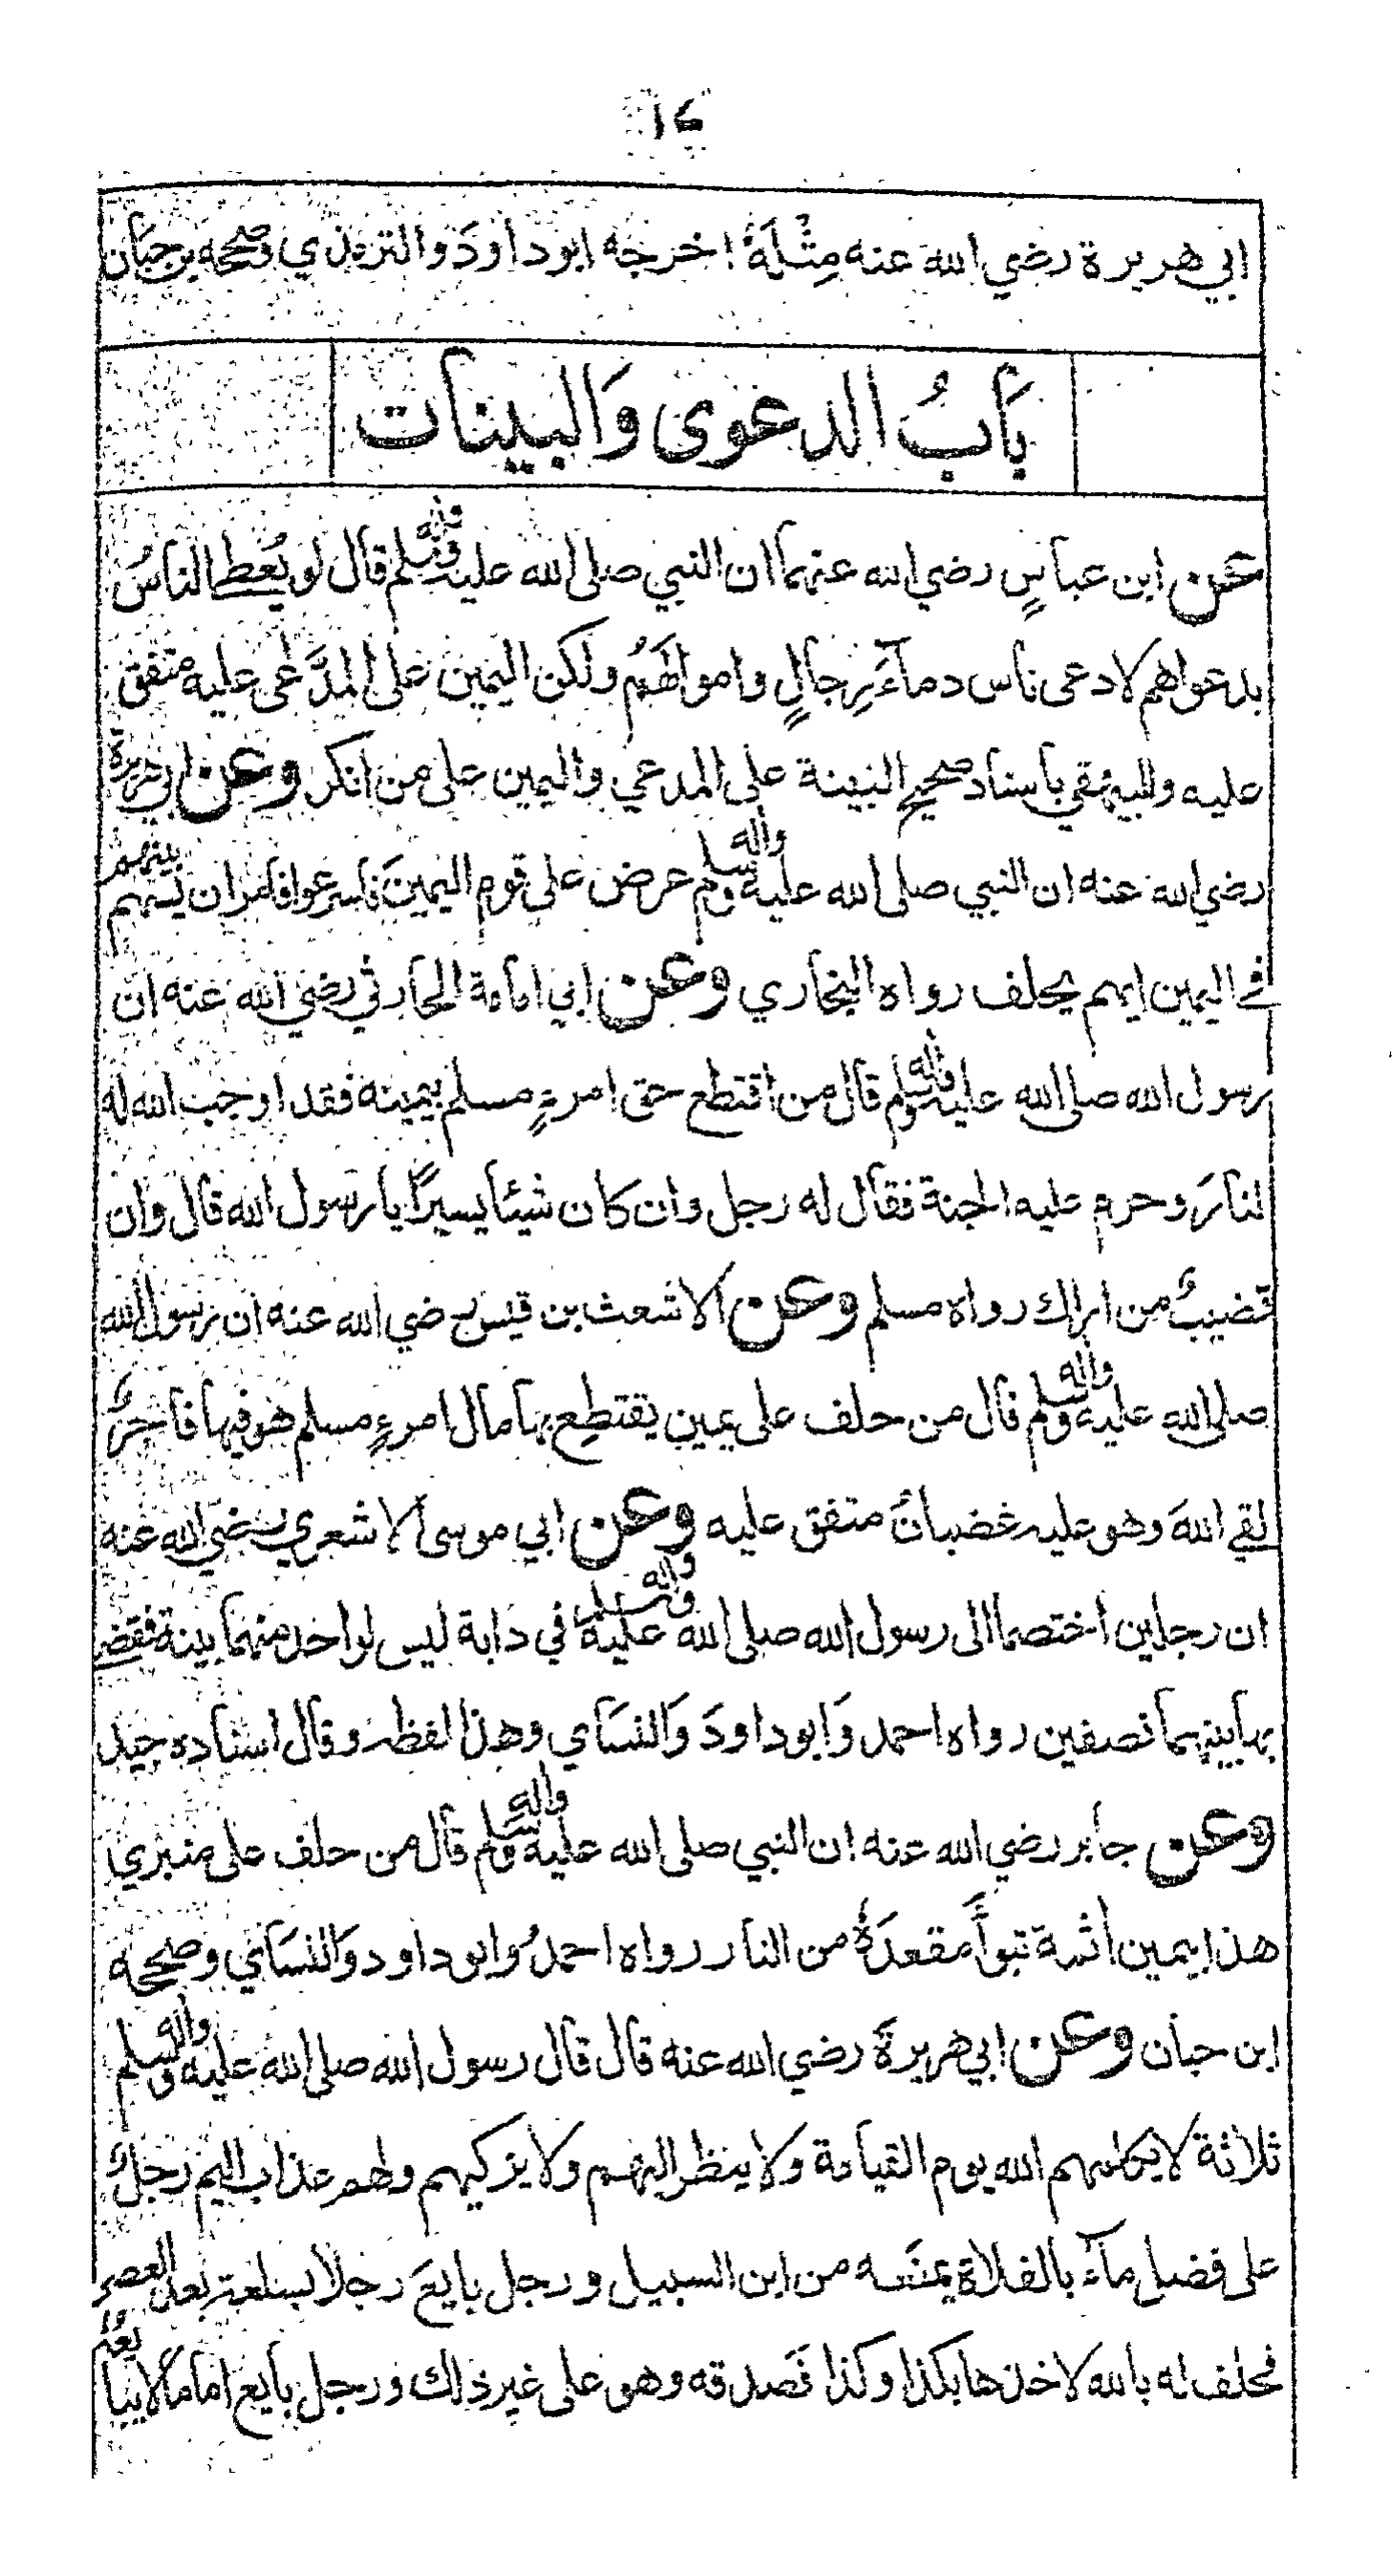 ابي هريرة رضي الله عنه مِثْلَهُ اخرجه ابو داودَ والترمذي وصححه بن حبَان
بَابُ الدعوى وَالبينات
عن ابن عباسٍ رضي الله عنهما ان النبي صلى الله عليه واله وسلم قال لو يُعطى الناسُ
بدعواهم لادعى ناس دماءَ رِجالٍ واموالَهُم ولكن اليمين على المدَّعى عليه متفق
عليه وللبيهقي باسناد صحيح البينة على المدعي واليمين على من انكر وعن ابي هريرة
رضي الله عنه ان النبي صلى الله عليه واله وسلم عرض على قوم اليمينَ فاسرعوا فامر ان يسهم بينهم
في اليمين ايهم يحلف رواه البخاري وعن ابي امامة الحارثي رضي الله عنه ان
رسول الله صلى الله عليه واله وسلم قال من اقتطع حق امرءٍ مسلم بيمينه فقد اوجب الله له
النارَ وحرم عليه الجنة فقال له رجل وان كان شيئا يسيرًا يا رسول الله قال وان
قضيبٌ من اراك رواه مسلم وعن الاشعث بن قيس رضي الله عنه ان رسول الله
صلى الله عليه واله وسلم قال من حلف على يمين يقتطع بها مال امرءٍ مسلم هو فيها فاجرٌ
لقي اللهَ وهو عليه غضبانُ متفق عليه وعن ابي موسى الاشعري رضي الله عنه
ان رجلين اختصما الى رسول الله صلى الله عليه واله وسلم في دابة ليس لواحد منهما بينة فقضى
بها بينهما نصفين رواه احمد وَابو داودَ وَالنسَاي وهذا لفظه وقال اسناده جيد
وعن جابر رضي الله عنه ان النبي صلى الله عليه واله وسلم قال من حلف على منبري
هذا بيمين اثمة تبوأَ مقعدَهُ من النار رواه احمدُ وابو داود وَالنسَاي وصححه
ابن حبان وعن ابي هريرةَ رضي الله عنه قال قال رسول الله صلى الله عليه واله وسلم
ثلاثة لا يكلمهم الله يوم القيامة ولا ينظر اليهم ولا يزكيهم ولهم عذاب اليم رجلٌ
على فضل ماءٍ بالفلاة يمنَعه من ابن السبيل ورجل بايعَ رجلا بسلعة بعد العصر
فحلف له بالله لاخذها بكذا وكذا فَصدقه وهو على غير ذلك ورجل بايع اماما لا يبايعُه